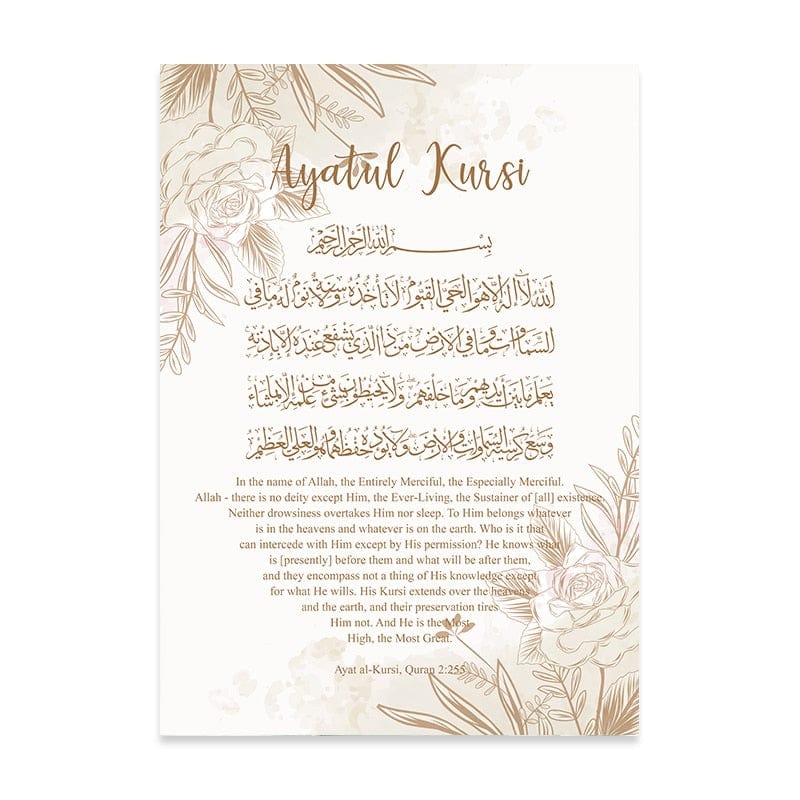 Ayatul Kursi
بِسْمِ اللهِ الرَّحْمٰنِ الرَّحِيْمِ
اَللهُ لَآ اِلٰهَ اِلَّا هُوَ الْحَيُّ الْقَيُّوْمُ لَا تَأْخُذُهُ سِنَةٌ وَّلَا نَوْمٌ لَهُ مَا فِي
السَّمَاوَاتِ وَمَا فِي الْاَرْضِ مَنْ ذَا الَّذِيْ يَشْفَعُ عِنْدَهُ اِلَّا بِاِذْنِهِ
يَعْلَمُ مَا بَيْنَ اَيْدِيْهِمْ وَمَا خَلْفَهُمْ وَلَا يُحِيْطُوْنَ بِشَيْءٍ مِّنْ عِلْمِهِ اِلَّا بِمَا شَاءَ
وَسِعَ كُرْسِيُّهُ السَّمَاوَاتِ وَالْاَرْضَ وَلَا يَؤُدُهُ حِفْظُهُمَا وَهُوَ الْعَلِيُّ الْعَظِيْمُ
In the name of Allah, the Entirely Merciful, the Especially Merciful.
Allah - there is no deity except Him, the Ever-Living, the Sustainer of [all] existence.
Neither drowsiness overtakes Him nor sleep. To Him belongs whatever
is in the heavens and whatever is on the earth. Who is it that
can intercede with Him except by His permission? He knows what
is [presently] before them and what will be after them,
and they encompass not a thing of His knowledge except
for what He wills. His Kursi extends over the heavens
and the earth, and their preservation tires
Him not. And He is the Most
High, the Most Great.
Ayat al-Kursi, Quran 2:255